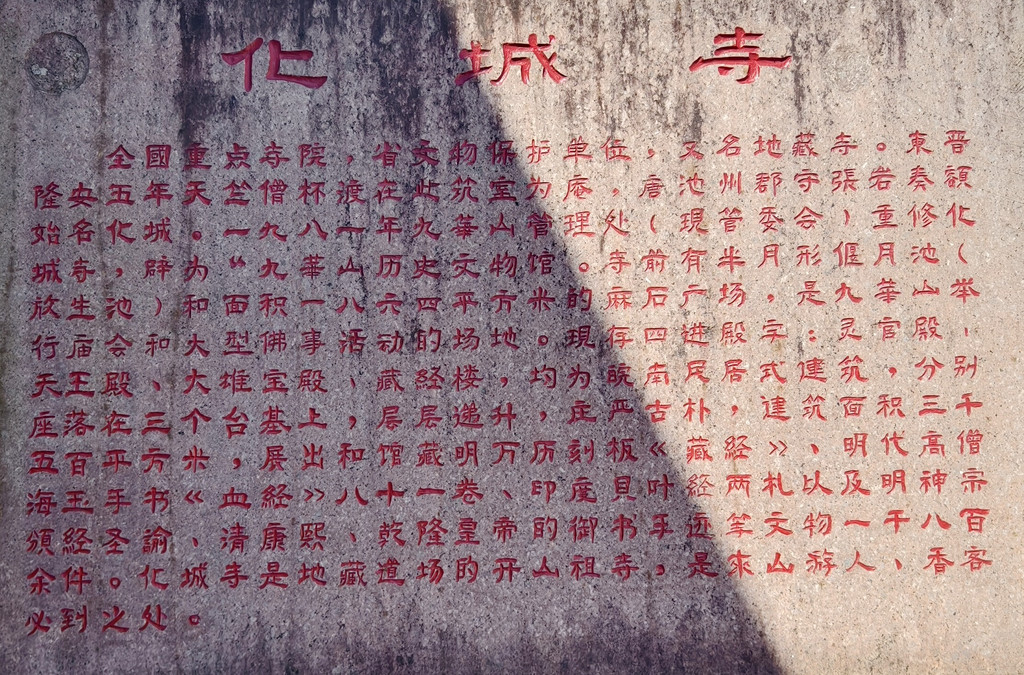 化城寺
全國重点寺院，省文物保护单位，又名地藏寺。東晋
隆安五年天竺僧杯渡在此筑室为庵，唐池州郡守張岩奏額
始名化城。一九八一年九華山管理处（現管委会）重修化
城寺，辟为“九華山历史文物馆。寺前有半月形偃月池（
放生池）和面积一八六四平方米的麻石广场，是九華山举
行庙会和大型佛事活动的场地。現存四进殿宇：灵官殿、
天王殿、大雄宝殿、藏经楼，均为皖南民居式建筑，分别
座落在三个台基上，层层递升，庄严古朴，建筑面积三千
五百平方米，展出和馆藏明万历刻板《藏經》、明代高僧
海玉手书《血經》八十一卷、印度貝叶經两札以及明神宗
頒経圣諭、清康熙、乾隆皇帝的御书手迹筆文物一千八百
余件。化城寺是地藏道场的开山祖寺，是來山游人、香客
必到之处。